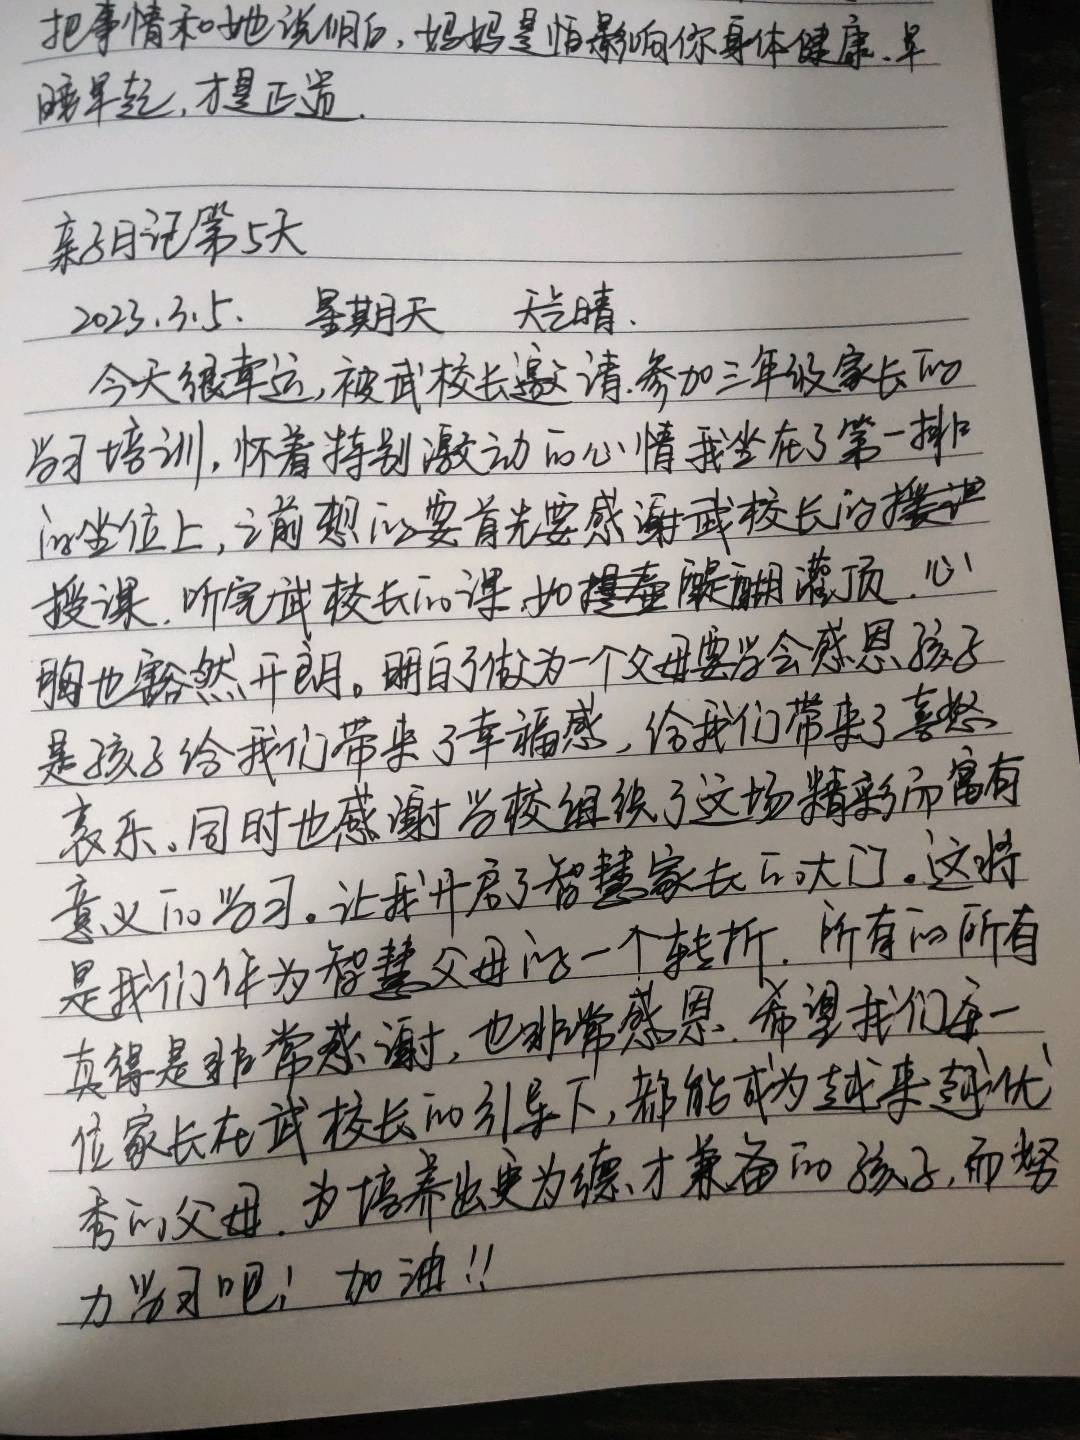 把事情和她说明白,妈妈是怕影响你身体健康.早
睡早起,才是正道.
亲子日记第5天
2023.3.5. 星期天 天气晴.
今天很幸运,被武校长邀请.参加三年级家长的
学习培训,怀着特别激动的心情我坐在了第一排
的坐位上,之前想的要首先要感谢武校长的
授课.听完武校长的课.如醍醐灌顶.心
胸也豁然开朗。明白了做为一个父母要学会感恩孩子
是孩子给我们带来了幸福感,给我们带来了喜怒
哀乐。同时也感谢学校组织了这场精彩而富有
意义的学习。让我开启了智慧家长的大门。这将
是我们作为智慧父母的一个转折.所有的所有
真得是非常感谢,也非常感恩.希望我们每一
位家长在武校长的引导下,都能成为越来越优
秀的父母.为培养出更为德.才兼备的孩子.而努
力学习吧!加油!!